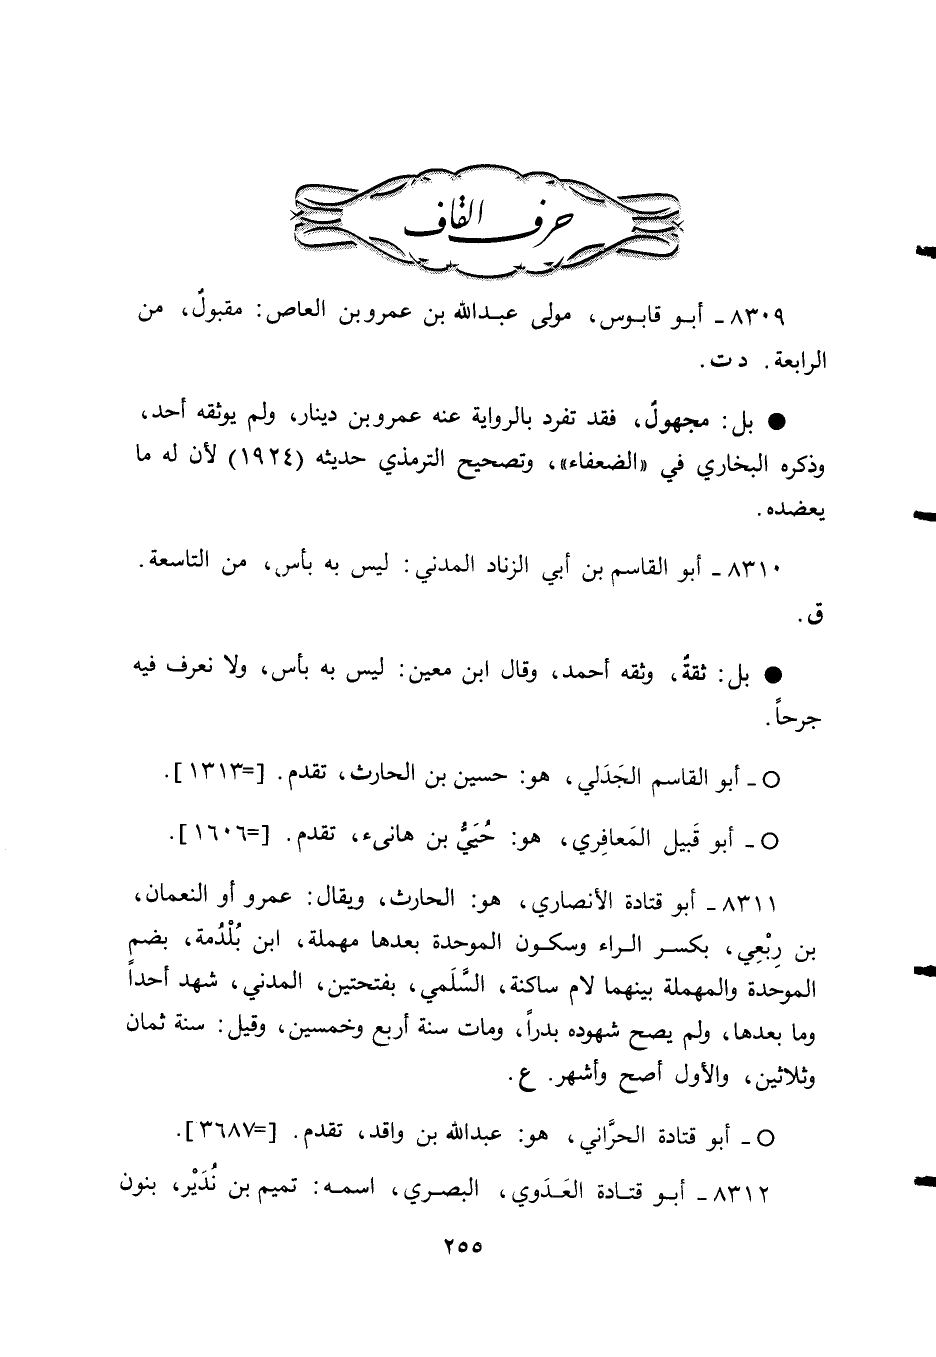 حرف القاف
٨٣٠٩ ـ أبو قابوس، مولى عبدالله بن عمرو بن العاص: مقبولٌ، من
الرابعة. د ت.
● بل: مجهولٌ، فقد تفرد بالرواية عنه عمرو بن دينار، ولم يوثقه أحد،
وذكره البخاري في «الضعفاء»، وتصحيح الترمذي حديثه (١٩٢٤) لأن له ما
يعضده.
٨٣١٠ ـ أبو القاسم بن أبي الزناد المدني: ليس به بأس، من التاسعة.
ق.
● بل: ثقةٌ، وثقه أحمد، وقال ابن معين: ليس به بأس، ولا نعرف فيه
جرحاً.
○ ـ أبو القاسم الجَدَلي، هو: حسين بن الحارث، تقدم. [=١٣١٣].
○ ـ أبو قَبيل المَعافِري، هو: حُيَيُّ بن هانىء، تقدم. [=١٦٠٦].
٨٣١١ ـ أبو قتادة الأنصاري، هو: الحارث، ويقال: عمرو أو النعمان،
بن رِبْعِي، بكسر الراء وسكون الموحدة بعدها مهملة، ابن بُلْدُمة، بضم
الموحدة والمهملة بينهما لام ساكنة، السَّلَمي، بفتحتين، المدني، شهد أحداً
وما بعدها، ولم يصح شهوده بدراً، ومات سنة أربع وخمسين، وقيل: سنة ثمان
وثلاثين، والأول أصح وأشهر. ع.
○ ـ أبو قتادة الحرَّاني، هو: عبدالله بن واقد، تقدم. [=٣٦٨٧].
٨٣١٢ ـ أبو قتادة العَدَوي، البصري، اسمه: تميم بن نُذَيْر، بنون
٢٥٥